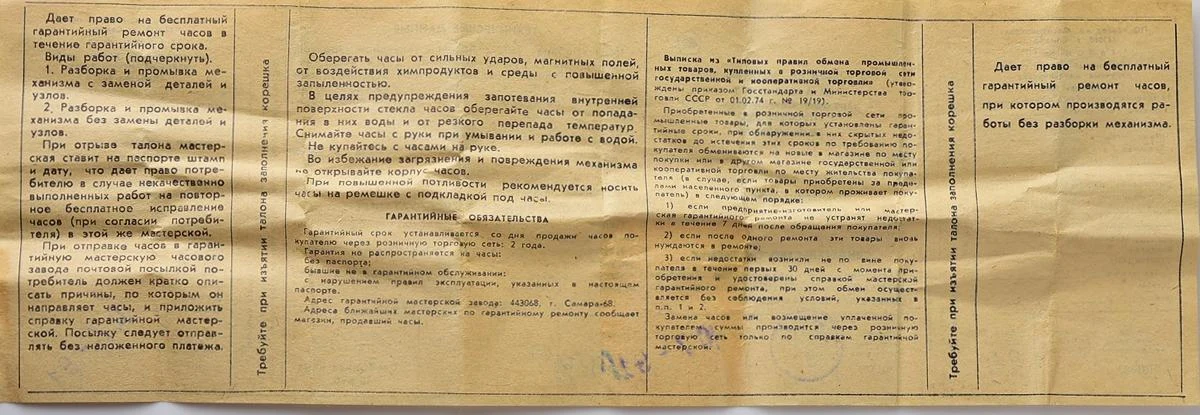 Дает право на бесплатный
гарантийный ремонт часов в
течение гарантийного срока.
Виды работ (подчеркнуть).
1. Разборка и промывка ме-
ханизма с заменой деталей и
узлов.
2. Разборка и промывка ме-
ханизма без замены деталей и
узлов.
При отрыве талона мастер-
ская ставит на паспорте штамп
и дату, что дает право потре-
бителю в случае некачественно
выполненных работ на повтор-
ное бесплатное исправление
часов (при согласии потреби-
теля) в этой же мастерской.
При отправке часов в гаран-
тийную мастерскую часового
завода почтовой посылкой по-
требитель должен кратко опи-
сать причины, по которым он
направляет часы, и приложить
справку гарантийной мастер-
ской. Посылку следует отправ-
лять без наложенного платежа.
Требуйте при изъятии талона заполнения корешка
Оберегать часы от сильных ударов, магнитных полей,
от воздействия химпродуктов и среды с повышенной
запыленностью.
В целях предупреждения запотевания внутренней
поверхности стекла часов оберегайте часы от попада-
ния в них воды и от резкого перепада температур.
Снимайте часы с руки при умывании и работе с водой.
Не купайтесь с часами на руке.
Во избежание загрязнения и повреждения механизма
не открывайте корпус часов.
При повышенной потливости рекомендуется носить
часы на ремешке с подкладкой под часы.
ГАРАНТИЙНЫЕ ОБЯЗАТЕЛЬСТВА
Гарантийный срок устанавливается со дня продажи часов по-
купателю через розничную торговую сеть: 2 года.
Гарантия не распространяется на часы:
без паспорта;
бывшие не в гарантийном обслуживании;
с нарушением правил эксплуатации, указанных в настоящем
паспорте.
Адрес гарантийной мастерской завода: 443068, г. Самара-68.
Адреса ближайших мастерских по гарантийному ремонту сообщает
магазин, продавший часы.
Выписка из «Типовых правил обмена промышлен-
ных товаров, купленных в розничной торговой сети
государственной и кооперативной торговли» (утвер-
ждены приказом Госстандарта и Министерства тор-
говли СССР от 01.02.74 г. № 19/19).
Приобретенные в розничной торговой сети про-
мышленные товары, для которых установлены гаран-
тийные сроки, при обнаружении в них скрытых недо-
статков до истечения этих сроков по требованию по-
купателя обмениваются на новые в магазине по месту
покупки или в другом магазине государственной или
кооперативной торговли по месту жительства покупа-
теля (в случае, если товары приобретены за преде-
лами населенного пункта, в котором проживает поку-
патель) в следующем порядке:
1) если предприятие-изготовитель или мастер-
ская гарантийного ремонта не устранят недостат-
ки в течение 7 дней после обращения покупателя;
2) если после одного ремонта эти товары вновь
нуждаются в ремонте;
3) если недостатки возникли не по вине поку-
пателя в течение первых 30 дней с момента при-
обретения и удостоверены справкой мастерской
гарантийного ремонта, при этом обмен осущест-
вляется без соблюдения условий, указанных в
п.п. 1 и 2.
Замена часов или возмещение уплаченной по-
купателем суммы производится через розничную
торговую сеть только по справкам гарантийной
мастерской.
Требуйте при изъятии талона заполнения корешка
Дает право на бесплатный
гарантийный ремонт часов,
при котором производятся ра-
боты без разборки механизма.